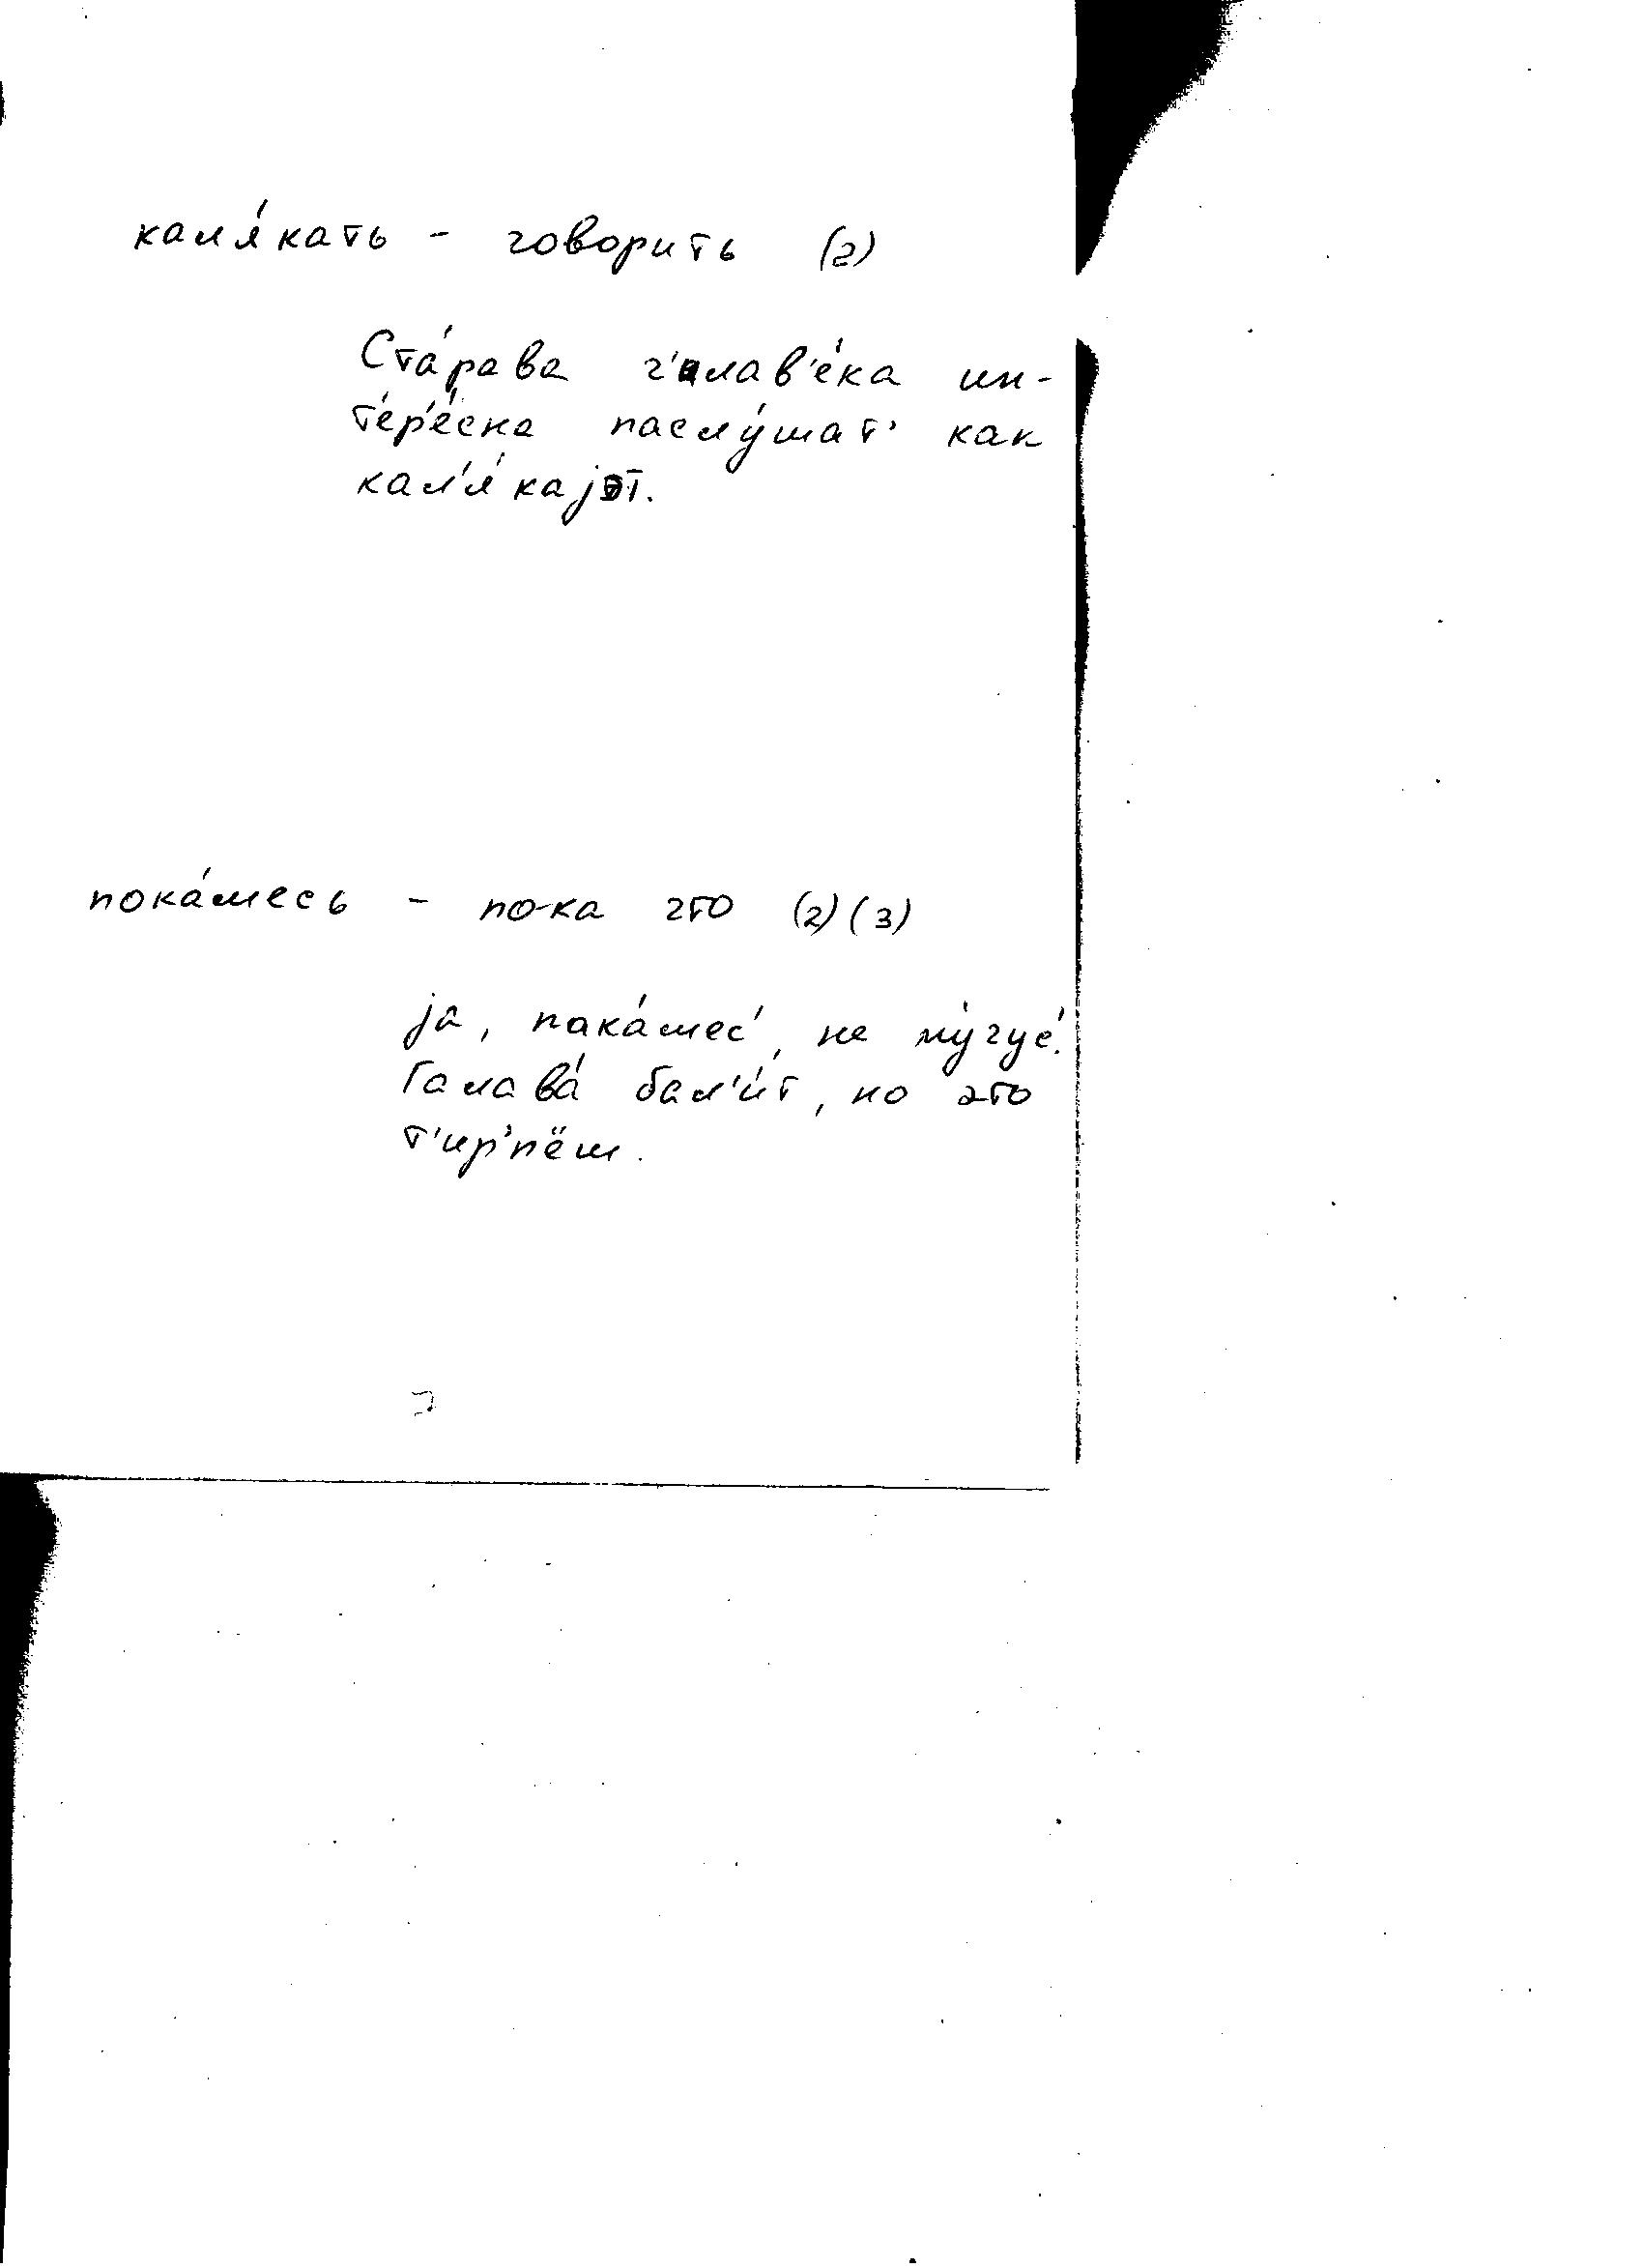 каля́кать - говорить (2)
Ста́рава ч'илав'е́ка ин-
т'ер'е́сна паслу́шат' как
кал'а́кајэт.
пока́месь - пока что (2) (3)
jа, пака́мес', не му́чус'.
Галава́ бал'и́т, но это
т'ир'пёш.